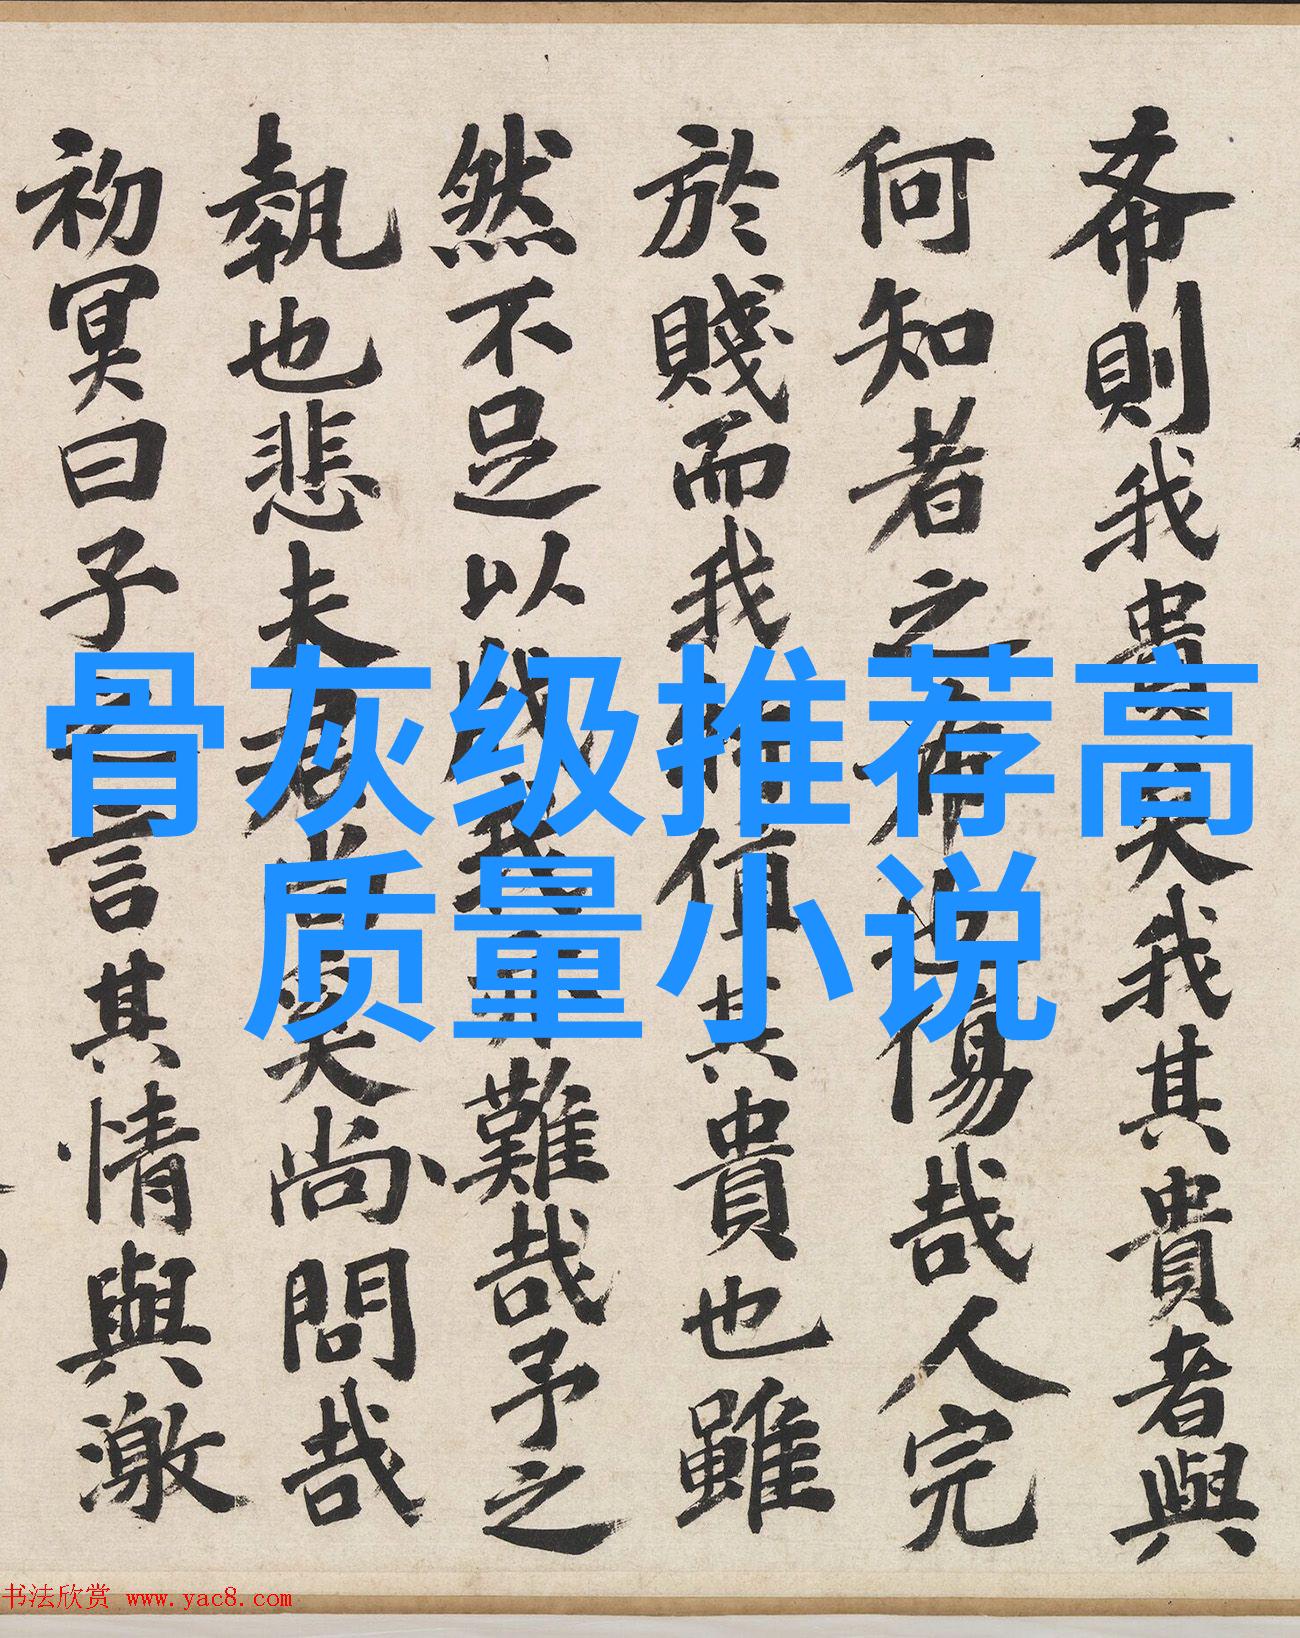 希則我貴矣我其貴者與
何知者之希也傷哉人完
於賤而我值其貴也雖
然不足以我難哉予之
執也悲夫君奚尚問哉
初冥曰子之言其情與激
骨灰级推荐高
质量小说
书法欣赏 www.yac8.com